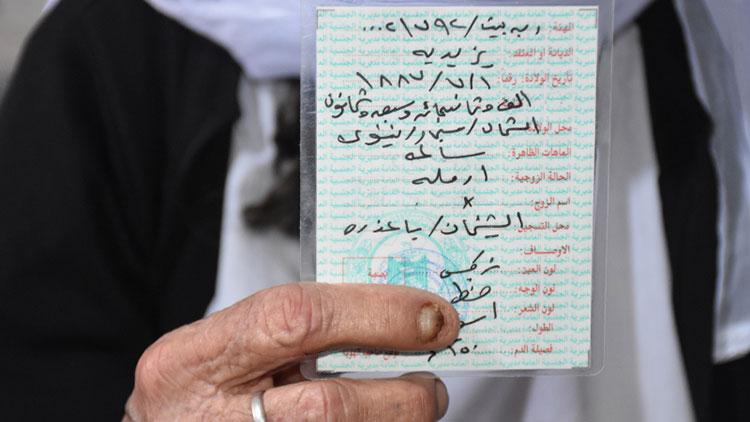 المهنة: ربه بيت / ٢١٧٩٢...
الديانة او المعتقد: يزيديه
تاريخ الولادة: رقما ١٨٨٧/٧/١
الف وثمانمائه وسبعه وثمانون
محل الولادة: الشيخان / نينوى
العاهات الظاهرة: سالمه
الحالة الزوجية: ارمله
اسم الزوج: ×
محل التسجيل: الشيخان / باعذره
الاوصاف:
لون العين:
لون الوجه: حنط
لون الشعر: اسو
الطول:
فصيلة الدم: